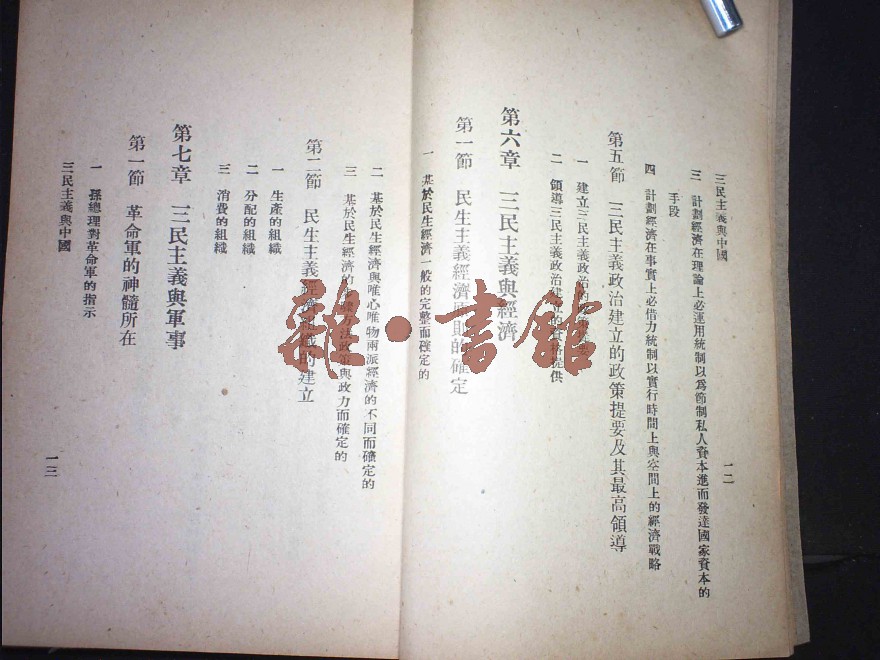 三民主義與中國
一二
三 計劃經濟在理論上必運用統制以爲節制私人資本進而發達國家資本的
手段
四 計劃經濟在事實上必借力統制以實行時間上與空間上的經濟戰略
第五節 三民主義政治建立的政策提要及其最高領導
一 建立三民主義政治的政策
二 領導三民主義政治建立的 提供
第六章 三民主義與經濟
第一節 民生主義經濟 則的確定
一 基於民生經濟一般的完整而確定的
二 基於民生經濟與唯心唯物兩派經濟的不同而確定的
三 基於民生經濟的 方法政策與政力而確定的
第二節 民生主義經濟組織的建立
一 生產的組織
二 分配的組織
三 消費的組織
第七章 三民主義與軍事
第一節 革命軍的神髓所在
一 孫總理對革命軍的指示
三民主義與中國
一三
雜·書館